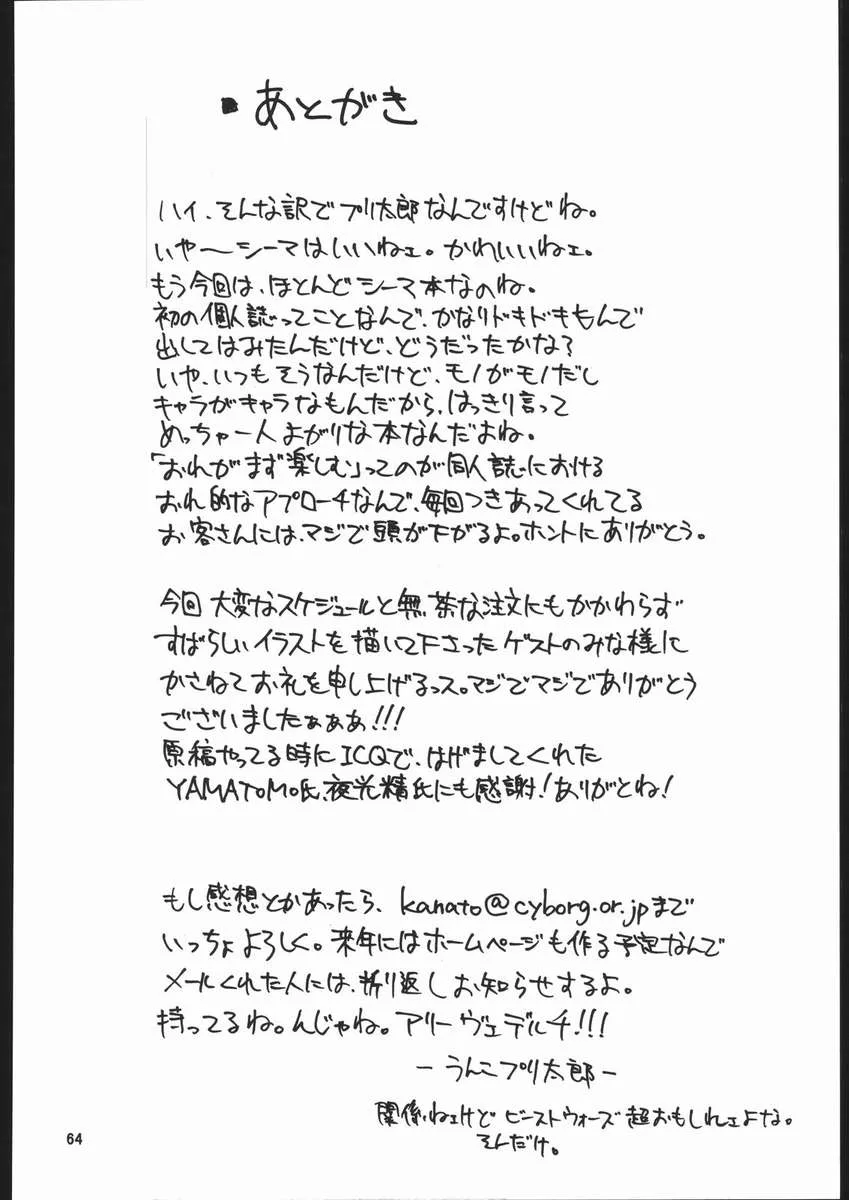 ・あとがき
ハイ、そんな訳でプリ太郎なんですけどね。
いや〜シーマはいいねェ。かわいいねェ。
もう今回は、ほとんどシーマ本なのね。
初の個人誌ってことなんで、かなりドキドキもんで
出してはみたんだけど、どうだったかな?
いや、いつもそうなんだけど、モノがモノだし
キャラがキャラなもんだから、はっきり言って
めっちゃ一人よがりな本なんだよね。
「おれがまず楽しむ」ってのが同人誌における
おれ的なアプローチなんで、毎回つきあってくれてる
お客さんには、マジで頭が下がるよ。ホントにありがとう。
今回 大変なスケジュールと無茶な注文にもかかわらず
すばらしいイラストを描いて下さったゲストのみな様に
かさねてお礼を申し上げるっス。マジでマジでありがとう
ございましたぁぁぁ!!!
原稿やってる時にICQで、はげましてくれた
YAMATOMO氏、夜光精氏にも感謝!ありがとね!
もし感想とかあったら、kanato@cyborg.or.jpまで
いっちょよろしく。来年にはホームページも作る予定なんで
メールくれた人には、折り返しお知らせするよ。
持ってるね。んじゃね。アリーヴェデルチ!!!
ーうんこプリ太郎ー
関係ねェけど ビーストウォーズ 超おもしれェよな。
そんだけ。
64